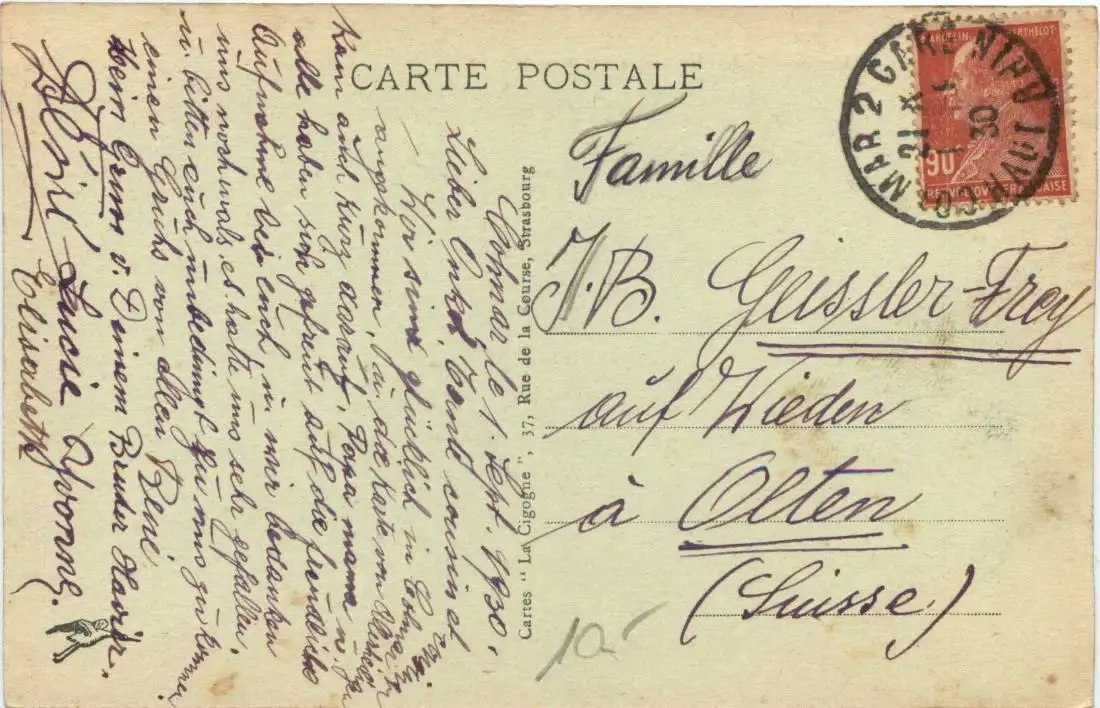 CARTE POSTALE
Colmar le 1. Sept. 1930.
Lieber Onkel, Tante cousin et
Wir sind glücklich in Colmar
angekommen, u. die karte von
kam auch kurz darauf, Papa mama u.
alle haben sich gefreut auf die freundliche
Aufnahme bei euch, u. wir bedanken
uns nochmals, es hatte uns sehr gefallen,
u. bitten euch unbedingt zu uns zu kommen
einen Gruss von allen René
Herr Gruss v. Deinem Bruder Xavier.
Lucie Yvonne.
Elisabeth
Cartes "La Cigogne", 37, Rue de la Course, Strasbourg
Famille
J.B. Geissler-Frey
auf Wieden
à Olten
(Suisse)
10.-
MARCELIN BERTHELOT
90
REPUBLIQUE FRANÇAISE
COLMAR 2 GARE HAUT RHIN
21
1 - 9
30